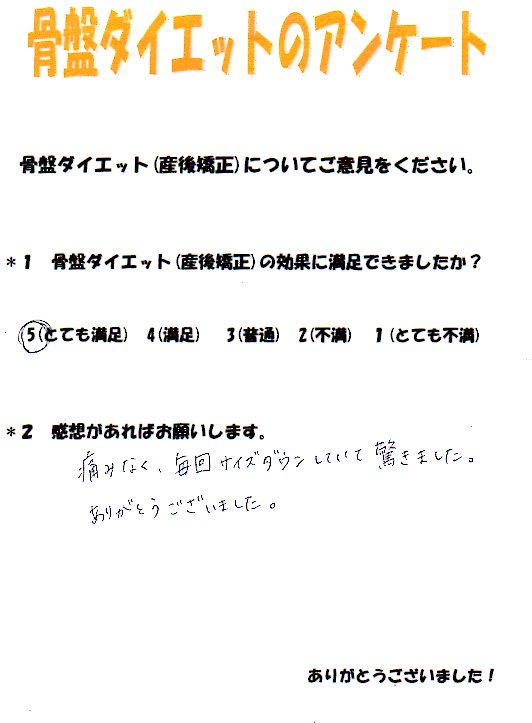 骨盤ダイエットのアンケート
骨盤ダイエット(産後矯正)についてご意見をください。
*1 骨盤ダイエット(産後矯正)の効果に満足できましたか？
5(とても満足) 4(満足) 3(普通) 2(不満) 1(とても不満)
*2 感想があればお願いします。
痛みなく、毎回サイズダウンしていて驚きました。
ありがとうございました。
ありがとうございました！